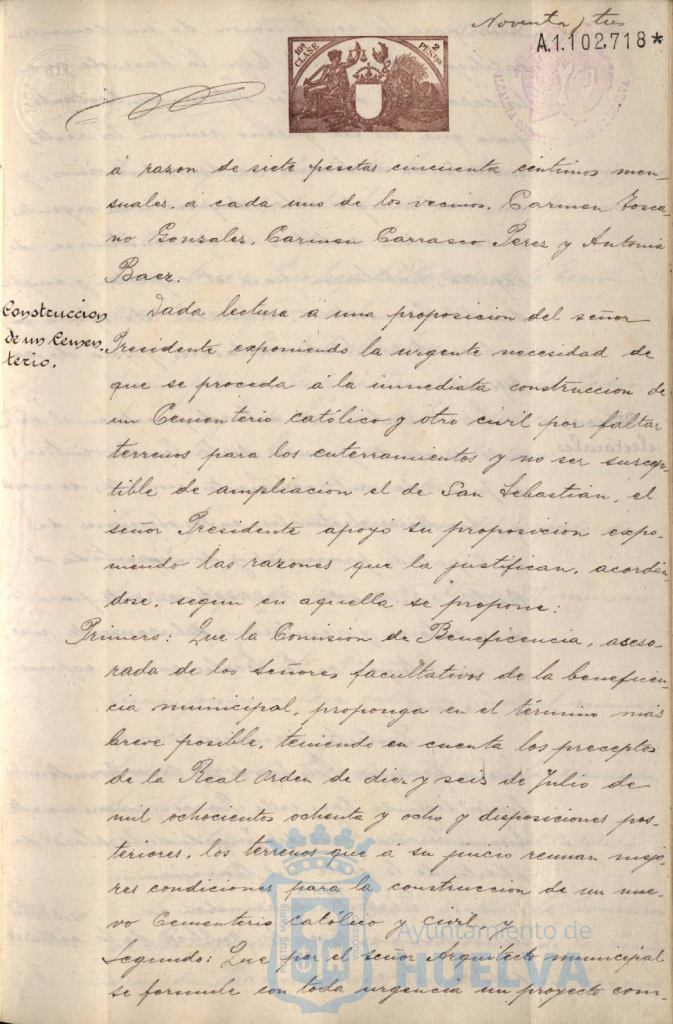 Noventa y tres
A.1.102,718*
10ª CLASE
2 PESETAS
á razon de siete pesetas cincuenta centimos men-
suales, á cada uno de los vecinos, Carmen Tosca-
no Gonzalez, Carmen Carrasco Perez y Antonia
Baez.
Construccion
de un Cemen-
terio.
Dada lectura á una proposicion del señor
Presidente exponiendo la urgente necesidad de
que se proceda á la inmediata construccion de
un Cementerio católico y otro civil por faltar
terrenos para los enterramientos y no ser suscep-
tible de ampliacion el de San Sebastián, el
señor Presidente apoyó su proposicion expo-
niendo las razones que la justifican, acordán-
dose, segun en aquella se propone:
Primero: Que la Comision de Beneficencia, aseso-
rada de los señores facultativos de la beneficen-
cia municipal, proponga en el término más
breve posible, teniendo en cuenta los preceptos
de la Real orden de diez y seis de Julio de
mil ochocientos ochenta y ocho y disposiciones pos-
teriores, los terrenos que á su juicio reunan mejo-
res condiciones para la construccion de un nue-
vo Cementerio católico y civil, y
Segundo: Que por el señor Arquitecto municipal
se formule con toda urgencia un proyecto com-
Ayuntamiento de
HUELVA